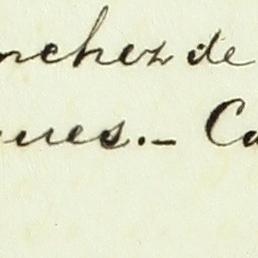 nchez de
ues.- Ca